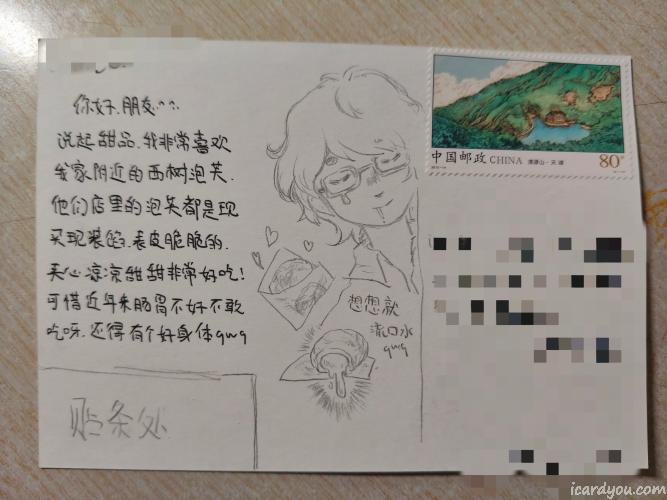 你好,朋友^^.
说起甜品.我非常喜欢
我家附近的西树泡芙.
他们店里的泡芙都是现
买现装馅.表皮脆脆的.
夹心凉凉甜甜非常好吃!
可惜近年来肠胃不好不敢
吃呀.还得有个好身体qwq
想想就
流口水
qwq
贴条处
中国邮政 CHINA
80分
icardyou.com